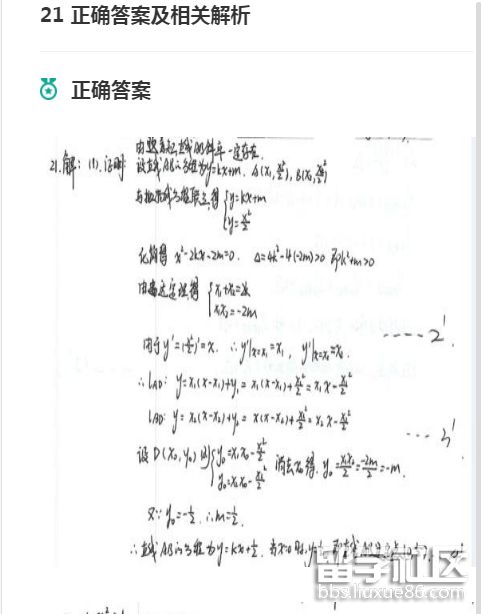 21 正确答案及相关解析
正确答案
由题意知直线AB的斜率一定存在.
21.解: (1).证明: 设直线AB的方程为y=kx+m, A(x₁,x₁²/2), B(x₂,x₂²/2)
与抛物线方程联立,得 {y=kx+m
y=x²/2
化简得 x²-2kx-2m=0. Δ=4k²-4(-2m)>0 即k²+2m>0
由韦达定理得 {x₁+x₂=2k
x₁x₂=-2m
---- 2'
由于y'=(x²/2)'=x. ∴y'|x=x₁=x₁, y'|x=x₂=x₂
∴lAD: y=x₁(x-x₁)+y₁=x₁(x-x₁)+x₁²/2=x₁x-x₁²/2
lBD: y=x₂(x-x₂)+y₂=x(x-x₂)+x₂²/2=x₂x-x₂²/2
--- 3'
设D(x₀,y₀) 则{y₀=x₁x₀-x₁²/2
y₀=x₂x₀-x₂²/2 消去x₀得. y₀=x₁x₂/2=-2m/2=-m.
又∵y₀=-1/2. ∴m=1/2.
∴直线AB的方程为y=kx+1/2. 当x=0时,y=1/2
留学社区
bbs.liuxue86.com